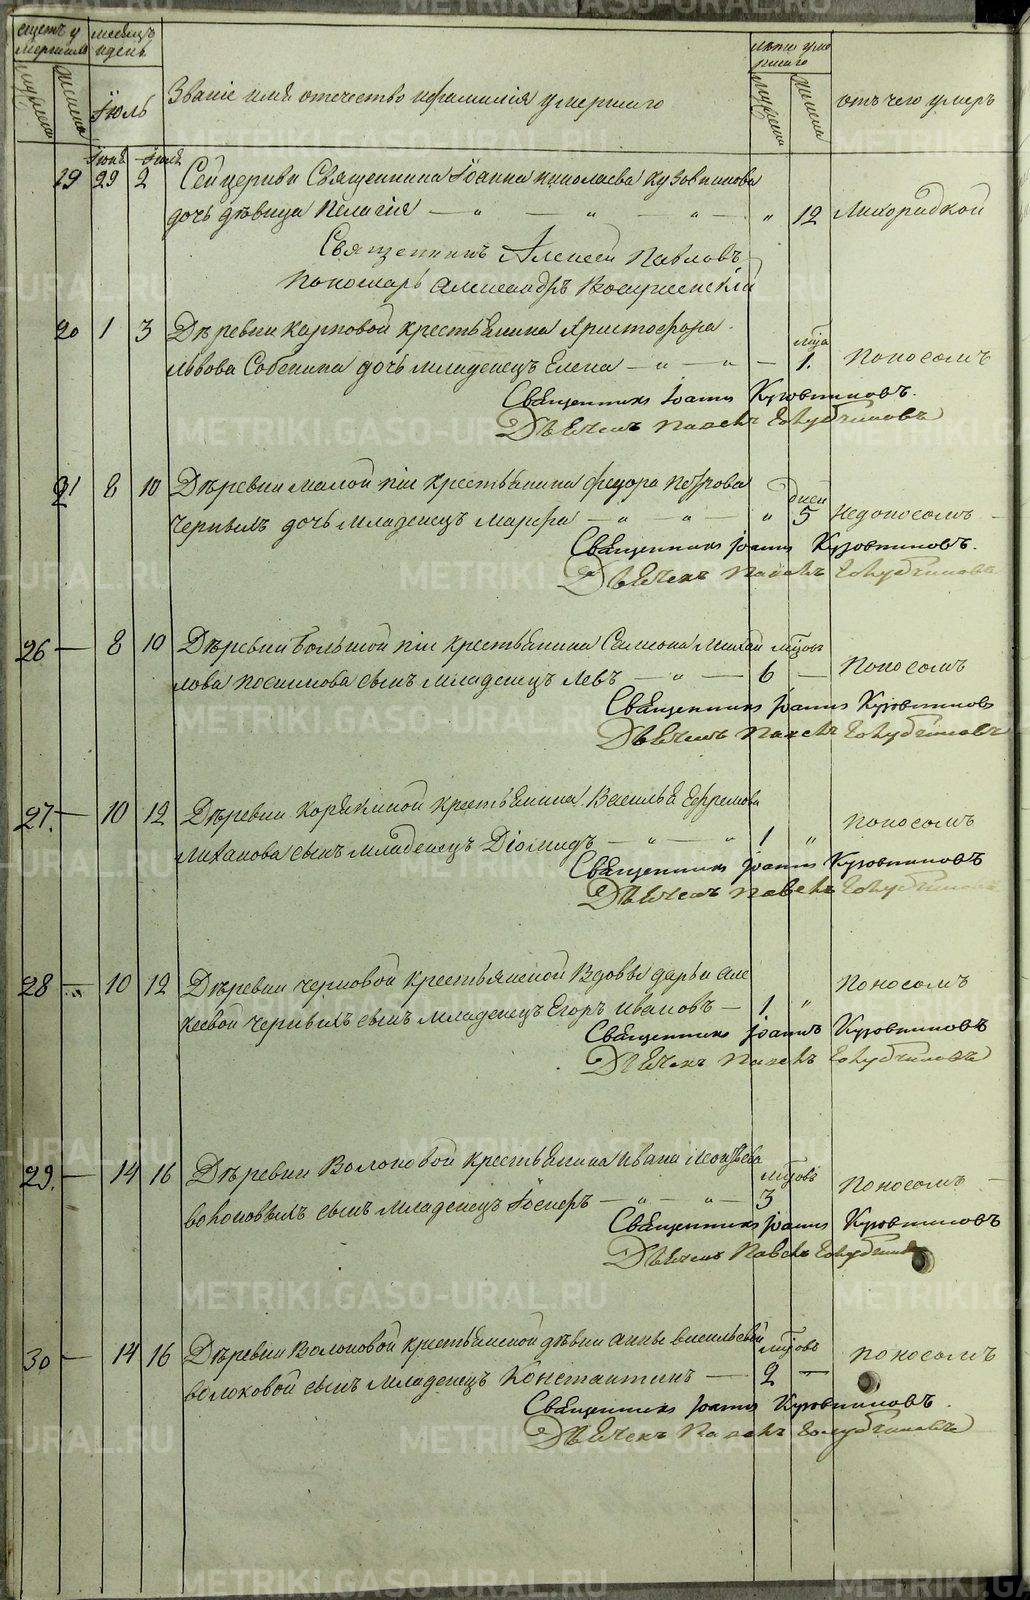 счетъ умершихъ
мужеска
женска
месяцъ и день
Іюль
Званіе имя отечество и фамилія умершаго
лета умершаго
мужеска
женска
отъ чего умеръ
Іюня Іюля
19 29 2 Сей церкви Священника Іоанна Николаева Кузовникова
дочь девица Пелагія — „ — „ „ — „ 12 Лихорадкой
Священникъ Алексей Павловъ
Пономарь Александръ Воскресенскій
20 1 3 Деревни Карповой крестьянина Христофора
Львова Собенина дочь младенецъ Елена — „ — „ — 1. Поносомъ
Священникъ Іоаннъ Кузовниковъ.
Дьячекъ Павелъ Голубчиковъ
21 8 10 Деревни Малой крестьянина Федора Петрова дней
Черныхъ дочь младенецъ Марфа — „ — „ — „ 5 Недоносомъ —
Священникъ Іоаннъ Кузовниковъ.
Дьячекъ Павелъ Голубчиковъ
26 — 8 10 Деревни Большой крестьянина Симиона Михай
лова сынъ младенецъ Левъ — „ — 6 — Поносомъ
Священникъ Іоаннъ Кузовниковъ
Дьячекъ Павелъ Голубчиковъ
27. — 10 12 Деревни крестьянина Василья Ефремова
сынъ младенецъ Діомидъ — „ — „ 1 „ Поносомъ
Священникъ Іоаннъ Кузовниковъ
Дьячекъ Павелъ Голубчиковъ
28 — 10 12 Деревни Черновой крестьянской вдовы Дарьи Але
ксевой Черныхъ сынъ младенецъ Егоръ Ивановъ — 1 „ Поносомъ
Священникъ Іоаннъ Кузовниковъ
Дьячекъ Павелъ Голубчиковъ
29. — 14 16 Деревни Волоковой крестьянина Ивана Леонтьева
Волоковыхъ сынъ младенецъ Іосифъ — „ — „ — 3 Поносомъ —
Священникъ Іоаннъ Кузовниковъ
Дьячекъ Павелъ Голубчиковъ
30 — 14 16 Деревни Волоковой крестьянской девки Анны Васильевой
Волоковой сынъ младенецъ Константинъ — 2 — Поносомъ
Священникъ Іоаннъ Кузовниковъ.
Дьячекъ Павелъ Голубчиковъ
METRIKI.GASO-URAL.RU